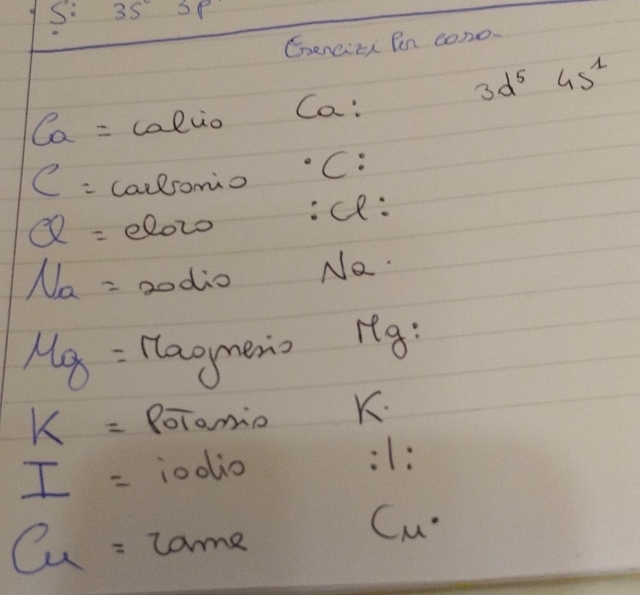 S: 3S 3p
Esercizi Per casa
3d⁵ 4s¹
Ca = calcio Ca:
C = carbonio ·C:
Cl = cloro :Cl:
Na = sodio Na·
Mg = Magnesio Mg:
K = Potassio K·
I = iodio :I:
Cu = rame Cu·